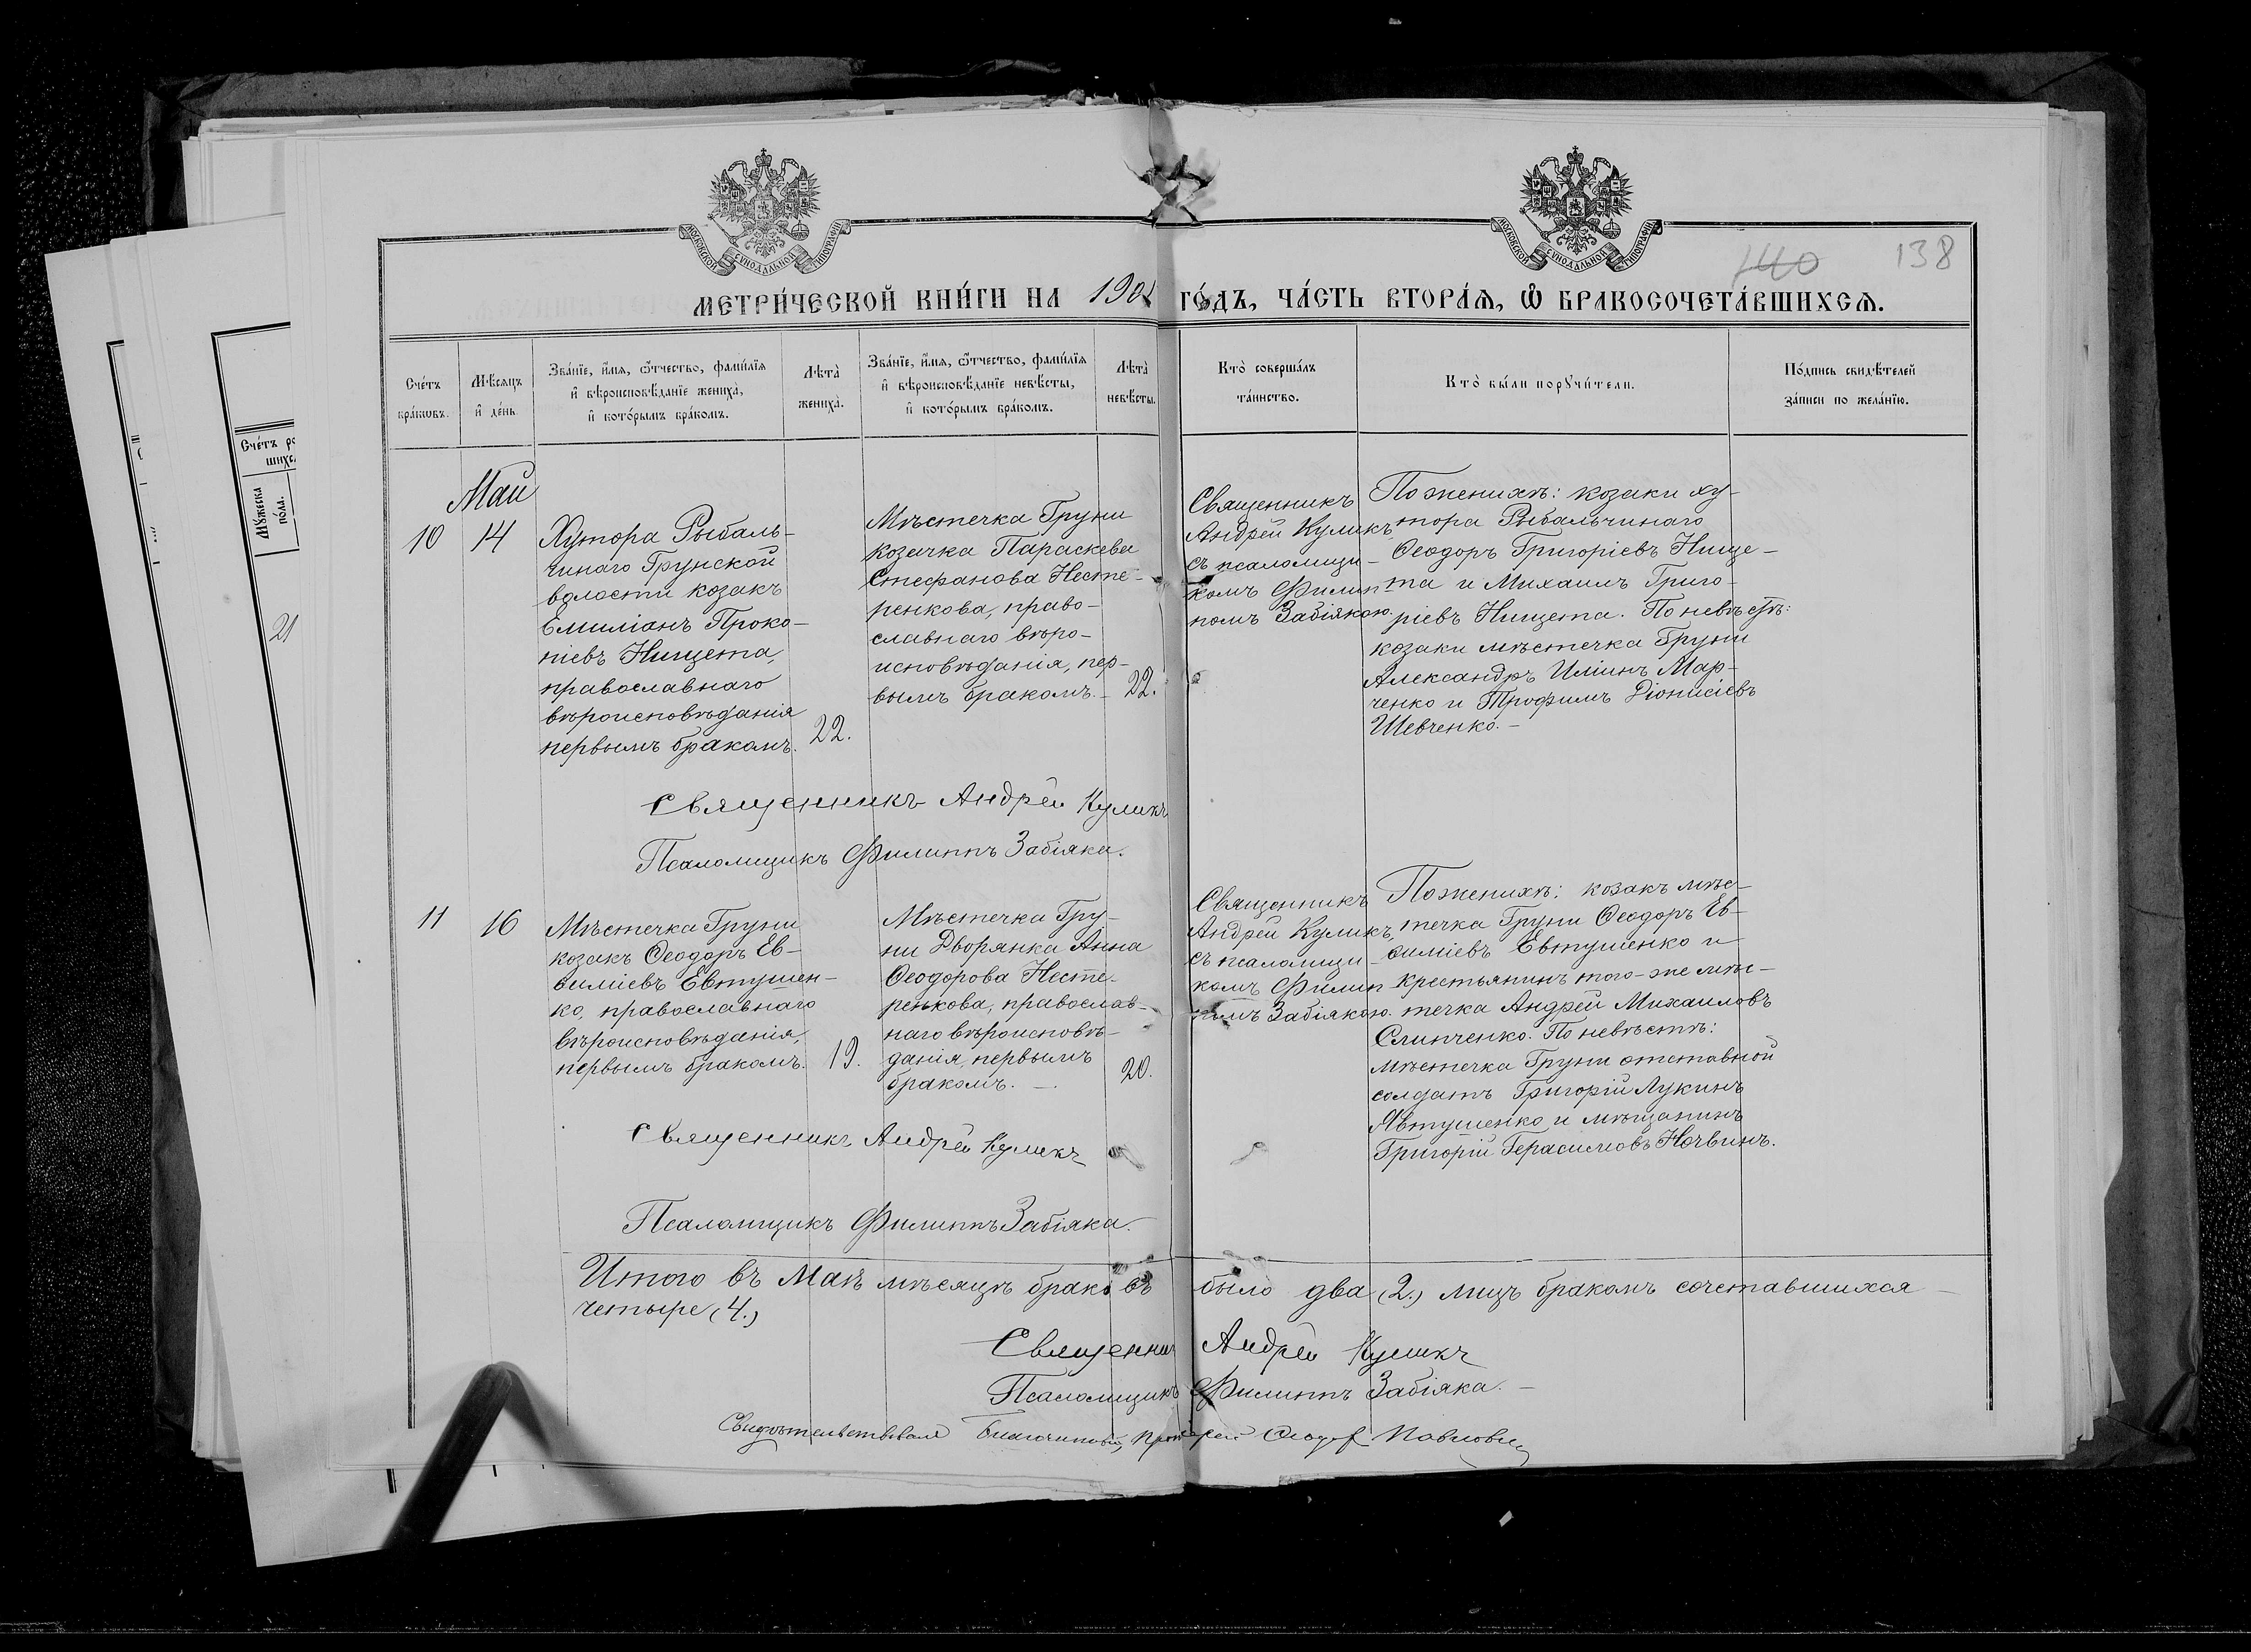 МОСКОВСКОЙ СѴНОДАЛЬНОЙ ТИПОГРАФІИ
МОСКОВСКОЙ СѴНОДАЛЬНОЙ ТИПОГРАФІИ
140 138
МЕТРИ́ЧЕСКОЙ КНИ́ГИ НА 190 ГО́ДЪ, ЧА́СТЬ ВТОРА́Ѧ, Ѡ҆ БРАКОСОЧЕТА́ВШИХСѦ.
Сче́тъ
бра́кѡвъ.
Мѣ́сѧцъ
и҆ де́нь.
Зва́нїе, и҆́мѧ, ѻ҆́тчество, фами́лїѧ
и҆ вѣроисповѣ́данїе жениха̀,
и҆ кото́рымъ бра́комъ.
Лѣта̀
жениха̀.
Зва́нїе, и҆́мѧ, ѻ҆́тчество, фами́лїѧ
и҆ вѣроисповѣ́данїе невѣ́сты,
и҆ кото́рымъ бра́комъ.
Лѣта̀
невѣ́сты.
Кто̀ соверша́лъ
та́инство.
Кто̀ бы́ли порꙋчи́тели.
По́дпись свидѣ́телей
за́писи по жела́нїю.
Май
10
14
Хутора Рыбаль-
чинаго Грунской
волости козакъ
Емиліанъ Проко-
піевъ Нищета,
православнаго
вѣроисповѣданія
первымъ бракомъ.
22.
Мѣстечка Груни
козачка Параскева
Стефанова Несте-
ренкова, право-
славнаго вѣро-
исповѣданія, пер-
вымъ бракомъ.-
22.
Священникъ
Андрей Куликъ
съ псаломщи-
комъ Филип-
помъ Забіякою.
По женихѣ: козаки ху-
тора Рыбальчинаго
Ѳеодоръ Григоріевъ Нище-
та и Михаилъ Григо-
ріевъ Нищета. По невѣстѣ:
козаки мѣстечка Груни
Александръ Иліинъ Мар-
ченко и Трофимъ Діонисіевъ
Шевченко.-
Священникъ Андрей Куликъ
Псаломщикъ Филиппъ Забіяка.
11
16
Мѣстечка Груни
козакъ Ѳеодоръ Ев-
ѳиміевъ Евтушен-
ко, православнаго
вѣроисповѣданія,
первымъ бракомъ.
19.
Мѣстечка Гру-
ни Дворянка Анна
Ѳеодорова Несте-
ренкова, православ-
наго вѣроисповѣ-
данія, первымъ
бракомъ. -.
20.
Священникъ
Андрей Куликъ
съ псаломщи-
комъ Филип
помъ Забіякою.
По женихѣ: козакъ мѣс-
течка Груни Ѳеодоръ Ев-
ѳиміевъ Евтушенко и
крестьянинъ того-же мѣс-
течка Андрей Михаиловъ
Слипченко. По невѣстѣ:
мѣстечка Груни отставной
солдатъ Григорій Лукинъ
Явтушенко и мѣщанинъ
Григорій Герасимовъ Ночвинъ.
Священникъ Андрей Куликъ
Псаломщикъ Филиппъ Забіяка.
Итого въ Маѣ мѣсяцѣ браковъ было два (2.) лицъ бракомъ сочетавшихся -
четыре (4.)
Священник Андрей Куликъ
Псаломщикъ Филиппъ Забіяка.-
Свидѣтельствовалъ Благочинный, Протоіерей
Сче́тъ
Мꙋ́жеска
по́ла.
21